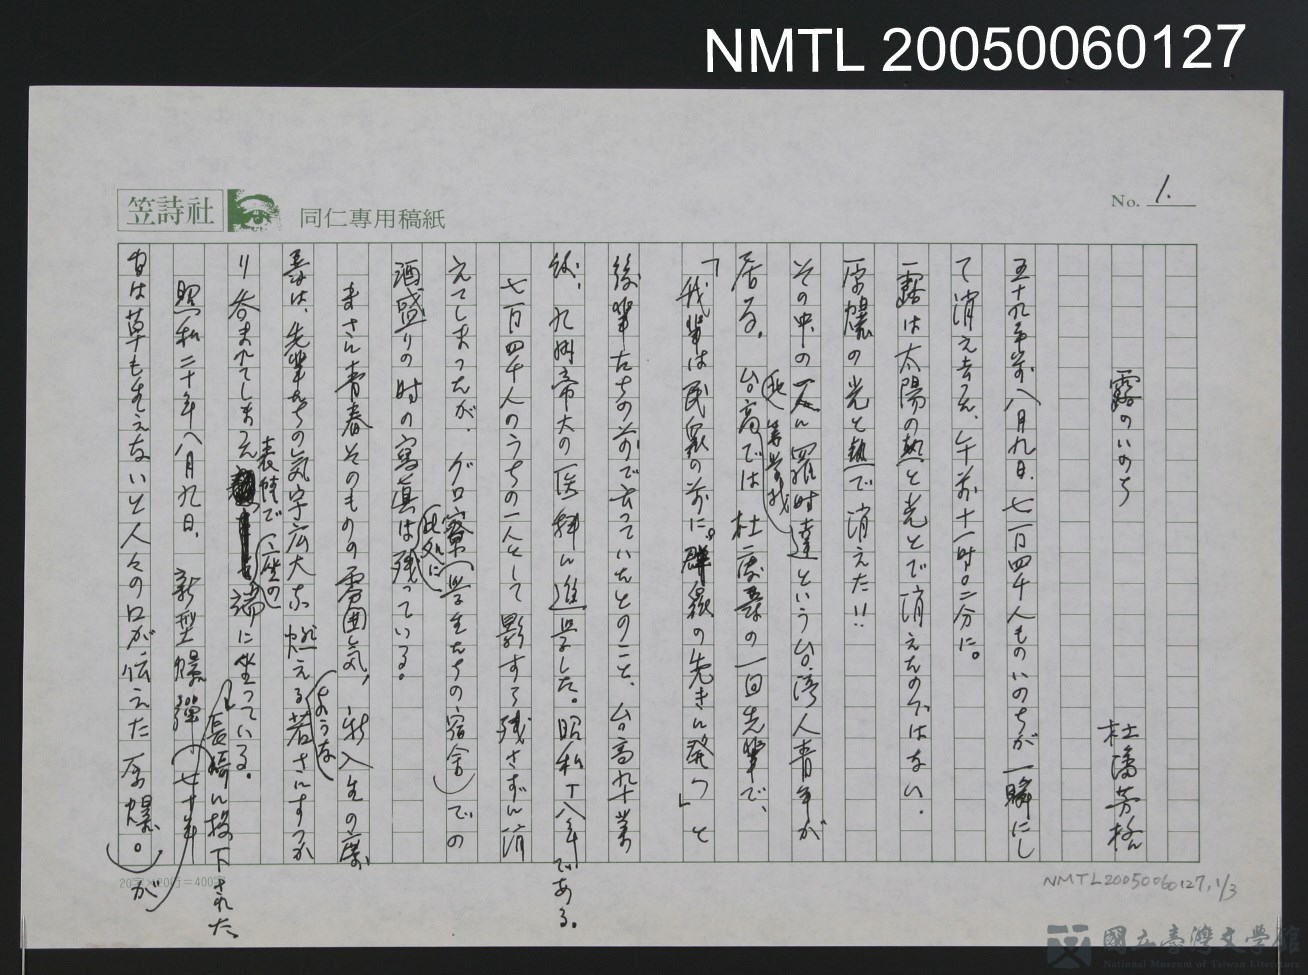 NMTL 20050060127
笠詩社
同仁專用稿紙
No. 1.
露のいのち
杜潘芳格
五十九年前八月九日、七万四千人ものいのちが一瞬にし
て消え去る、午前十一時〇二分に。
露は太陽の熱と光とで消えたのではない、
原爆の光と熱で消えた!!
その中の一人に羅時達という台湾人青年が
居る。台高では杜慶壽の一回先輩で、
「我輩は民衆の前に。群衆の先きに発つ」と
後輩たちの前で云っていたとのこと、台高卒業
後、九州帝大の医科に進学した。昭和十八年である。
七万四千人のうちの一人として影すら残さずに消
えてしまったが、ゲロ寮(学生たちの宿舎)での
此処に
酒盛りの時の寫真は残っている。
まさに青春そのものの雰囲気、新入生の慶
壽は、先輩たちの気宇広大な燃える若さにすっか
ような
り呑まれてしまえ
表情で
座の
端に坐っている。
長崎に投下された
昭和二十年八月九日、新型爆弾(七十年
間は草もはえないと人々の口が伝えた原爆。)が
20字×20行=400字
NMTL20050060127,1/3
國立臺灣文學館
National Museum of Taiwan Literature